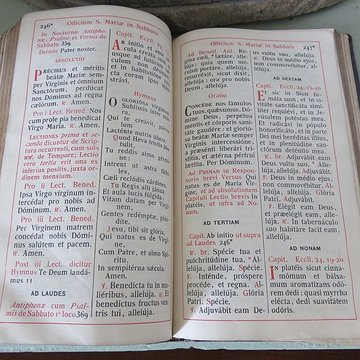 246*
Officium S. Mariæ in Sabbato
In Nocturno Antiphona, Psalmi et Versus de
Sabbato 369
Deinde Pater noster.
ABSOLUTIO
PRécibus et méritis
beátæ Maríæ semper
Vírginis et ómnium
Sanctórum, perdúcat
nos Dóminus ad regna
cælórum. ℟. Amen.
Pro j Lect. Bened.
Nos cum prole pia benedícat
Virgo María. ℟. Amen.
Pro ij Lect. Bened.
Ipsa Virgo vírginum intercédat pro nobis ad
Dóminum. ℟. Amen.
Pro iij Lect. Bened.
Per Vírginem matrem
concédat nobis Dóminus salútem et pacem.
℟. Amen.
Post iij Lect. dicitur
Hymnus Te Deum laudámus 11
AD LAUDES
Antiphonæ cum Psalmis de Sabbato 1º loco 369
Capit. Eccli. 24, 14
AB inítio et ante
sæcula creáta sum,
et usque ad futúrum
sæculum non désinam,
et in habitatióne sancta
coram ipso ministrávi.
Hymnus
O gloriósa vírginum,
Lacténte nutris úbere.
Quod Heva tristis ábstulit,
Tu reddis almo gérmine:
Cæli reclúdis cárdines.
Tu Regis alti iánua
Et aula lucis fúlgida:
Vitam datam per Vírginem,
Gentes redémptæ, pláudite.
Jesu, tibi sit glória,
Qui natus es de Vírgine,
Cum Patre, et almo
Spíritu,
In sempitérna sæcula.
Amen.
℣. Benedícta tu in muliéribus, allelúja.
℟. Et benedíctus fructus ventris tui, allelúja.
Officium S. Mariæ in Sabbato
247*
Ad Bened. Ant. Regína cæli, * lætáre, allelúja; quia quem meruísti portáre, allelúja;
resurréxit, sicut dixit,
allelúja : ora pro nobis
Deum, allelúja.
Orátio
COncéde nos fámulos
tuos, quǽsumus, Dómine Deus, perpétua
mentis et córporis sanitáte gaudére : et gloriósa
beátæ Maríæ semper
Vírginis intercessióne,
a præsénti liberári tristítia, et ætérna pérfrui
lætítia. Per Dóminum.
Ad PRIMAM in Responsorio brevi Versus Qui
natus es de María Vírgine, et ad absolutionem
Capituli Lectio brevis In
plateis, ut infra ad Nonam.
AD TERTIAM
Capit. Ab inítio ut supra
ad Laudes 246*
℟. br. Spécie tua et
pulchritúdine tua, * Allelúja, allelúja. Spécie.
℣. Inténde, próspere
procéde, et regna. Allelúja, allelúja. Glória
Patri. Spécie.
℣. Adjuvábit eam Deus
AD SEXTAM
Capit. Eccli. 24, 15-16
ET sic in Sion firmáta
sum, et in civitáte sanctificáta simíliter requiévi, et in Jerúsalem
potéstas mea. Et radicávi
in pópulo honorificáto,
et in parte Dei mei heréditas illíus, et in plenitúdine sanctórum deténtio mea.
℟. br. Adjuvábit eam
Deus vultu suo, * Allelúja, allelúja. Adjuvábit.
℣. Deus in médio ejus,
non commovébitur. Allelúja, allelúja. Glória
Patri. Adjuvábit.
℣. Elégit eam Deus,
et præelégit eam, allelúja. ℟. In tabernáculo
suo habitáre facit eam,
allelúja.
AD NONAM
Capit. Eccli. 24, 19-20
IN platéis sicut cinnamómum et bálsamum aromatízans odórem dedi: quasi myrrha
elécta, dedi suavitátem
odóris.